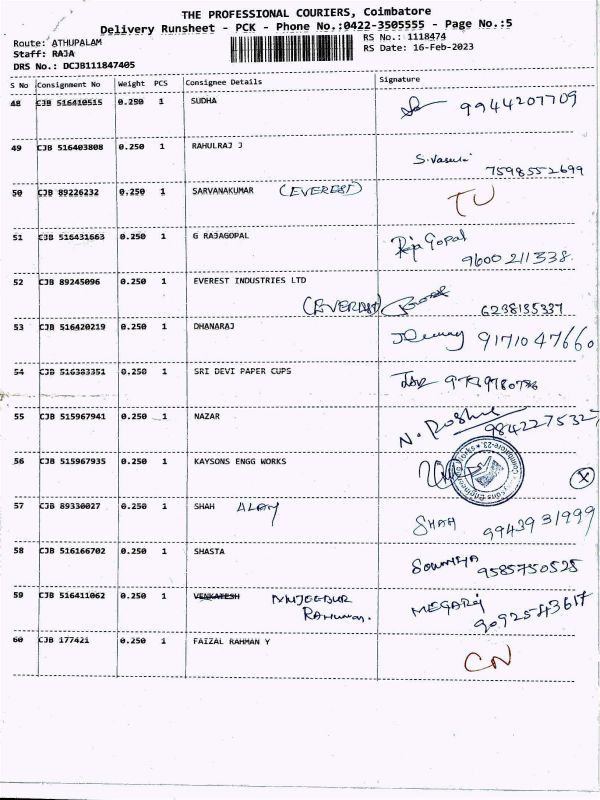 THE PROFESSIONAL COURIERS, Coimbatore
Delivery Runsheet - PCK - Phone No.:0422-3505555 - Page No.:5
Route: ATHUPALAM
RS No.: 1118474
Staff: RAJA
RS Date: 16-Feb-2023
DRS No.: DCJB111847405
S No Consignment No Weight PCS Consignee Details Signature
48 CJB 516410515 0.250 1 SUDHA 9944207709
49 CJB 516403808 0.250 1 RAHULRAJ J S.Vasuki
7598552699
50 CJB 89226232 0.250 1 SARVANAKUMAR (EVEREST) TU
51 CJB 516431663 0.250 1 G RAJAGOPAL Raja Gopal
9600211338
52 CJB 89245096 0.250 1 EVEREST INDUSTRIES LTD
(EVEREST) 6238135337
53 CJB 516420219 0.250 1 DHANARAJ 9171047660
54 CJB 516383351 0.250 1 SRI DEVI PAPER CUPS
55 CJB 515967941 0.250 1 NAZAR N. Roshni
9842275327
56 CJB 515967935 0.250 1 KAYSONS ENGG WORKS X
57 CJB 89330027 0.250 1 SHAH ALAM SHAH
9943931999
58 CJB 516166702 0.250 1 SHASTA Sowmiya
9585750525
59 CJB 516411062 0.250 1 VENKATESH MUJEEBUR MEGARAJ
RAHUMAN. 9092543617
60 CJB 177421 0.250 1 FAIZAL RAHMAN Y CN